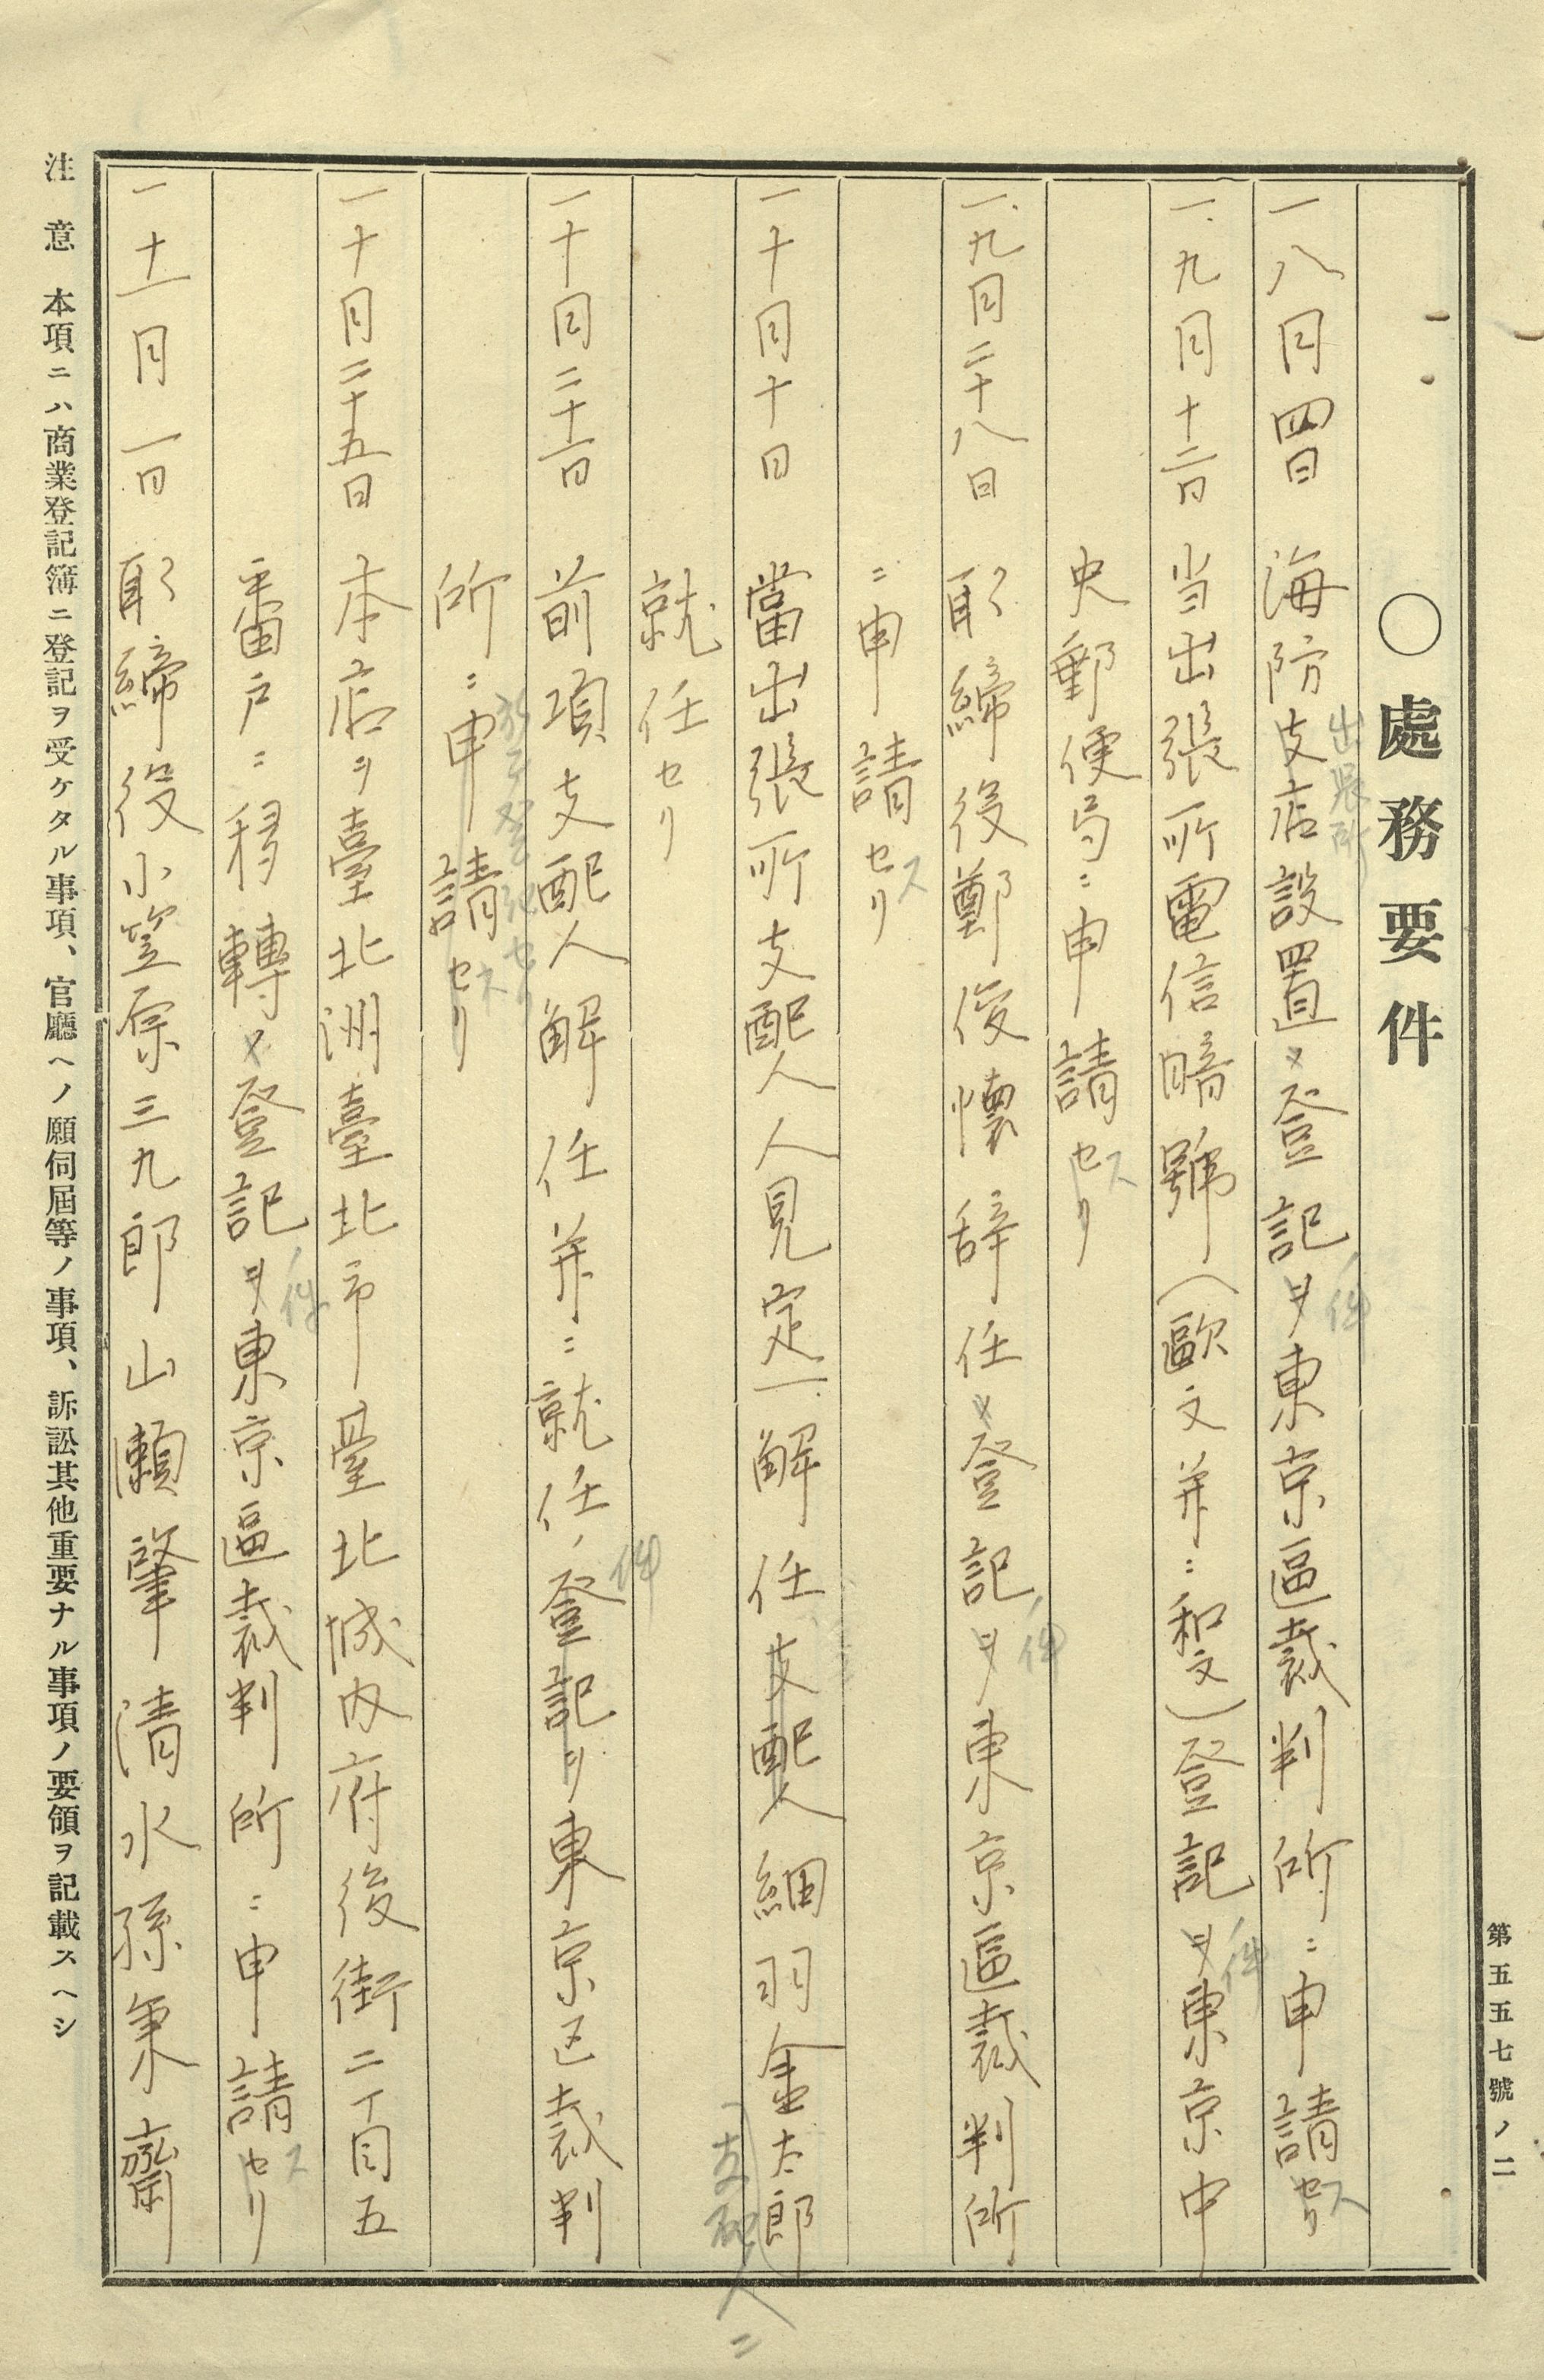 第五五七號ノ二
○處務要件
一八月四日 海防支店設置ノ登記ヲ東京區裁判所ニ申請セリ
出張所
ノ件
ス
一、九月十二日 当出張所電信暗號(歐文并ニ和文)登記ヲ東京中
ノ件
央郵便局ニ申請セリ
ス
一、九月二十八日 取締役鄭俊懐辞任ノ登記ヲ東京區裁判所
ノ件
ニ申請セリ
ス
一十月十日 當出張所支配人人見定一解任支配人細羽金太郎
支配人ニ
就任セリ
一十月二十一日 前項支配人解任并ニ就任ノ登記ヲ東京区裁判
件
所ニ申請セリ
ス
於テ登記セリ
一十月二十五日 本店ヲ臺北洲臺北市臺北城内府後街二丁目五
番戸ニ移轉ノ登記ヲ東京區裁判所ニ申請セリ
ノ件
ス
一十一月一日 取締役小笠原三九郎山瀬肇清水孫秉齋
注意 本項ニハ商業登記簿ニ登記ヲ受ケタル事項、官廳ヘノ願伺屆等ノ事項、訴訟其他重要ナル事項ノ要領ヲ記載スヘシ